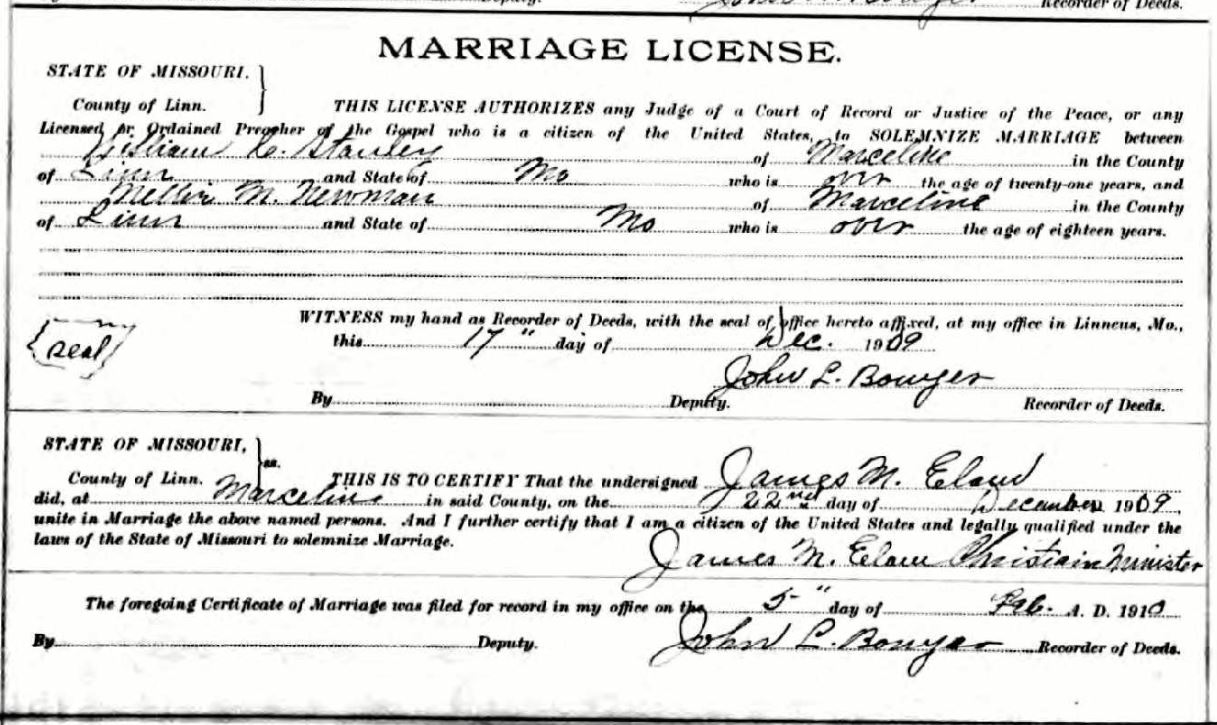 Deputy. Recorder of Deeds.
MARRIAGE LICENSE.
STATE OF MISSOURI.
County of Linn. THIS LICENSE AUTHORIZES any Judge of a Court of Record or Justice of the Peace, or any
Licensed or Ordained Preacher of the Gospel who is a citizen of the United States, to SOLEMNIZE MARRIAGE between
William Stanley of Marceline in the County
of Linn and State of Mo who is over the age of twenty-one years, and
Nellie M. Newman of Marceline in the County
of Linn and State of Mo who is over the age of eighteen years.
WITNESS my hand as Recorder of Deeds, with the seal of office hereto affixed, at my office in Linneus, Mo.,
(seal) this 17" day of Dec. 1909
John L. Bowyer
By Deputy. Recorder of Deeds.
STATE OF MISSOURI, ss.
County of Linn. THIS IS TO CERTIFY That the undersigned James M. Elam
did, at Marceline in said County, on the 22nd day of December 1909,
unite in Marriage the above named persons. And I further certify that I am a citizen of the United States and legally qualified under the
laws of the State of Missouri to solemnize Marriage.
James M. Elam Christian Minister
The foregoing Certificate of Marriage was filed for record in my office on the 5" day of Feb. A. D. 1910
By Deputy. John L. Bowyer Recorder of Deeds.